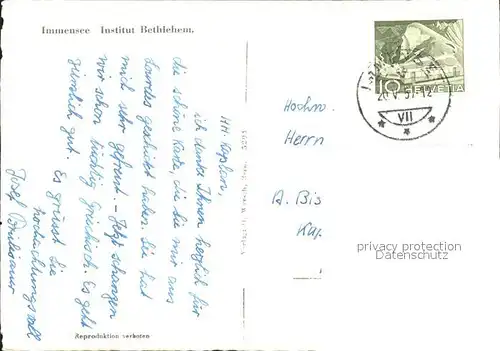 Immensee Institut Bethlehem.
HH. Kaplan,
ich danke Ihnen herzlich für
die schöne Karte, die Sie mir aus
Lourdes geschickt haben. Sie hat
mich sehr gefreut. – Jetzt
wir schon tüchtig Griechisch. Es geht
ziemlich gut. Es grüsst Sie
hochachtungsvoll
Josef
Reproduktion verboten
HELVETIA
10
VII
Hochw.
Herrn
A. Bis
Kap
privacy protection
Datenschutz